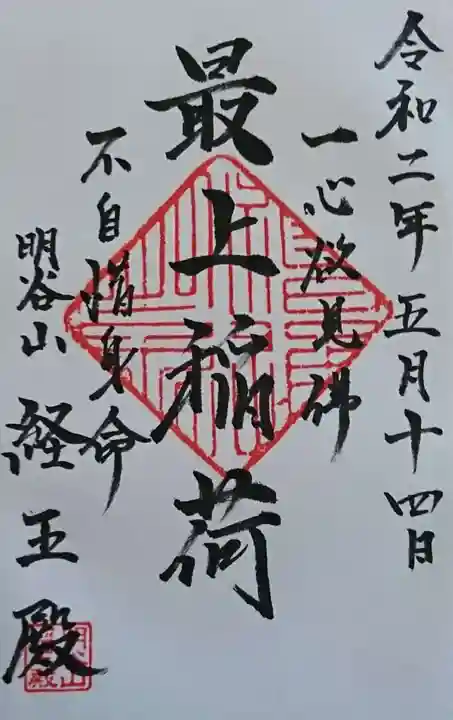 令和二年五月十四日
一心欲見佛
最上稲荷
不自惜身命
明谷山 経王殿